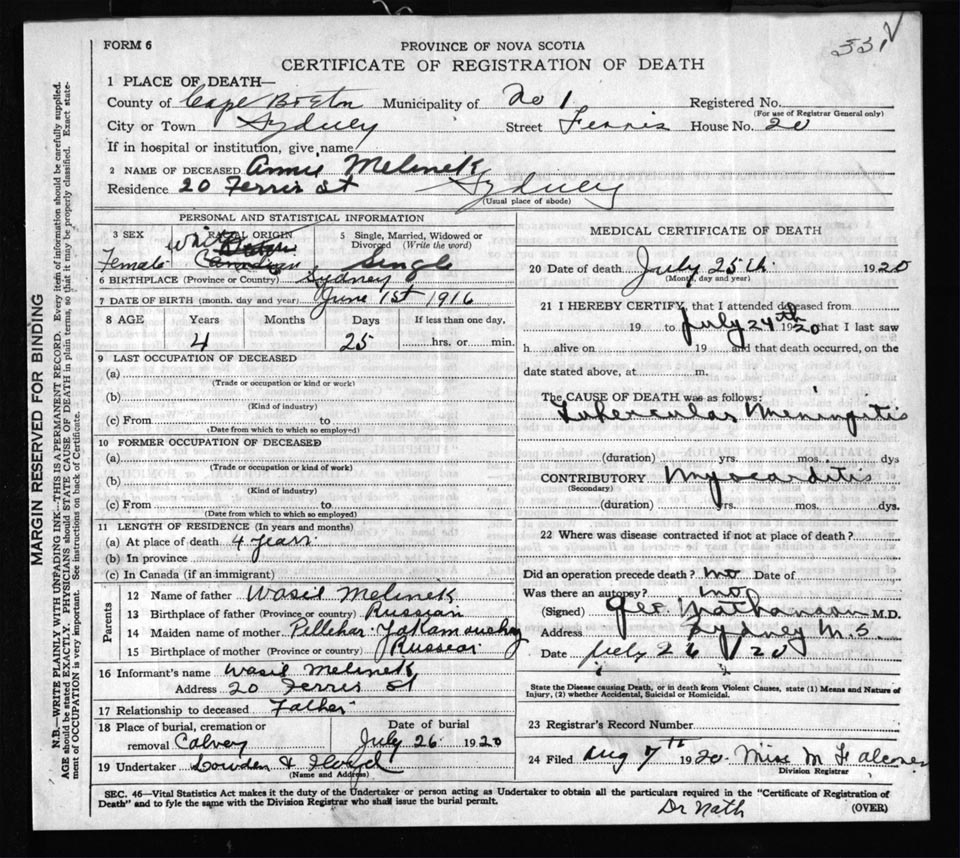 331
FORM 6
PROVINCE OF NOVA SCOTIA
CERTIFICATE OF REGISTRATION OF DEATH
1 PLACE OF DEATH—
County of Cape Breton Municipality of No 1 Registered No.
(For use of Registrar General only)
City or Town Sydney Street Ferris House No. 20
If in hospital or institution, give name
2 NAME OF DECEASED Annie Melinek
Residence 20 Ferris St Sydney
(Usual place of abode)
PERSONAL AND STATISTICAL INFORMATION
3 SEX RACIAL ORIGIN 5 Single, Married, Widowed or
Divorced (Write the word)
White
Female Canadian Single
6 BIRTHPLACE (Province or Country) Sydney
7 DATE OF BIRTH (month, day and year) June 1st 1916
8 AGE Years Months Days If less than one day.
4 25 hrs. or min.
9 LAST OCCUPATION OF DECEASED
(a)
(Trade or occupation or kind or work)
(b)
(Kind of industry)
(c) From to
(Date from which to which so employed)
10 FORMER OCCUPATION OF DECEASED
(a)
(Trade or occupation or kind of work)
(b)
(Kind of industry)
(c) From to
(Date from which to which so employed)
11 LENGTH OF RESIDENCE (In years and months)
(a) At place of death 4 years
(b) In province
(c) In Canada (if an immigrant)
Parents
12 Name of father Wasil Melinek
13 Birthplace of father (Province or country) Russian
14 Maiden name of mother
15 Birthplace of mother (Province or country) Russian
16 Informant's name Wasil Melinek
Address 20 Ferris St
17 Relationship to deceased Father
18 Place of burial, cremation or Date of burial
removal Calvery July 26 1920
19 Undertaker Lowden & Floyd
(Name and Address)
MEDICAL CERTIFICATE OF DEATH
20 Date of death July 25th 1920
(Month, day and year)
21 I HEREBY CERTIFY, that I attended deceased from
19 to July 24th 1920 that I last saw
h alive on 19 and that death occurred, on the
date stated above, at m.
The CAUSE OF DEATH was as follows:
Tubercular Meningitis
(duration) yrs. mos. dys
CONTRIBUTORY Myocarditis
(Secondary)
(duration) yrs. mos. dys.
22 Where was disease contracted if not at place of death?
Did an operation precede death? no Date of
Was there an autopsy? no
(Signed) Nathanson M.D.
Address Sydney N.S.
Date July 26 / 20
State the Disease causing Death, or in death from Violent Causes, state (1) Means and Nature of
Injury, (2) whether Accidental, Suicidal or Homicidal.
23 Registrar's Record Number
24 Filed Aug 7th 1920 Miss M Falconer
Division Registrar
SEC. 46—Vital Statistics Act makes it the duty of the Undertaker or person acting as Undertaker to obtain all the particulars required in the "Certificate of Registration of
Death" and to fyle the same with the Division Registrar who shall issue the burial permit.
Dr Nath (OVER)
MARGIN RESERVED FOR BINDING
N.B.—WRITE PLAINLY WITH UNFADING INK—THIS IS A PERMANENT RECORD. Every item of information should be carefully supplied.
AGE should be stated EXACTLY. PHYSICIANS should STATE CAUSE OF DEATH in plain terms, so that it may be properly classified. Exact state-
ment of OCCUPATION is very important. See instructions on back of Certificate.